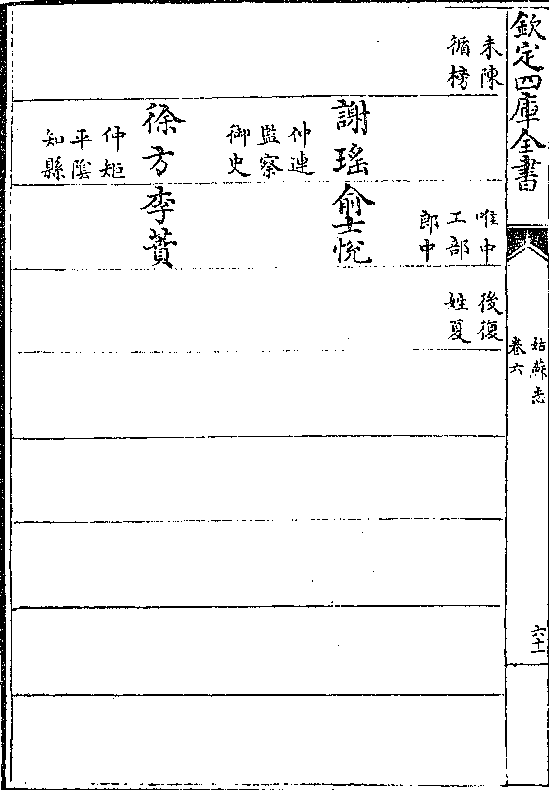 欽定四庫全書
姑蘇志
卷六
六十一
未陳
循榜
謝瑤
仲連
監察
御史
徐方
仲矩
平陰
知縣
唯中
工部
郎中
俞士悅
李蕡
後復
姓夏